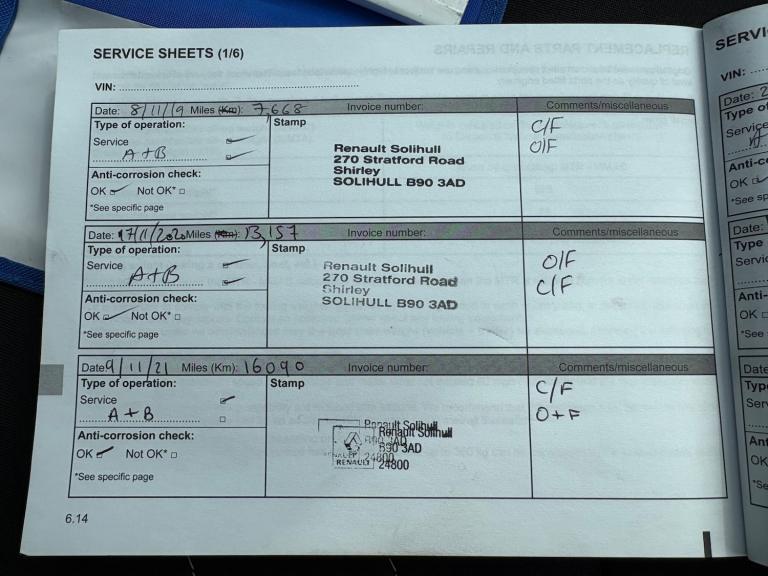 SERVICE SHEETS (1/6)
VIN:
Date: 8/11/19 Miles (Km): 7,668 Invoice number: Comments/miscellaneous
Type of operation:
Service
A+B
Anti-corrosion check:
OK Not OK*
*See specific page
Stamp
Renault Solihull
270 Stratford Road
Shirley
SOLIHULL B90 3AD
C/F
O/F
Date: 17/11/2020 Miles (Km): 13,157 Invoice number: Comments/miscellaneous
Type of operation:
Service
A+B
Anti-corrosion check:
OK Not OK*
*See specific page
Stamp
Renault Solihull
270 Stratford Road
Shirley
SOLIHULL B90 3AD
O/F
C/F
Date 9/11/21 Miles (Km): 16090 Invoice number: Comments/miscellaneous
Type of operation:
Service
A+B
Anti-corrosion check:
OK Not OK*
*See specific page
Stamp
RENAULT
Renault Solihull
B90 3AD
24800
C/F
O+F
6.14
VIN:
Date:
Type
Date:
Type
Date